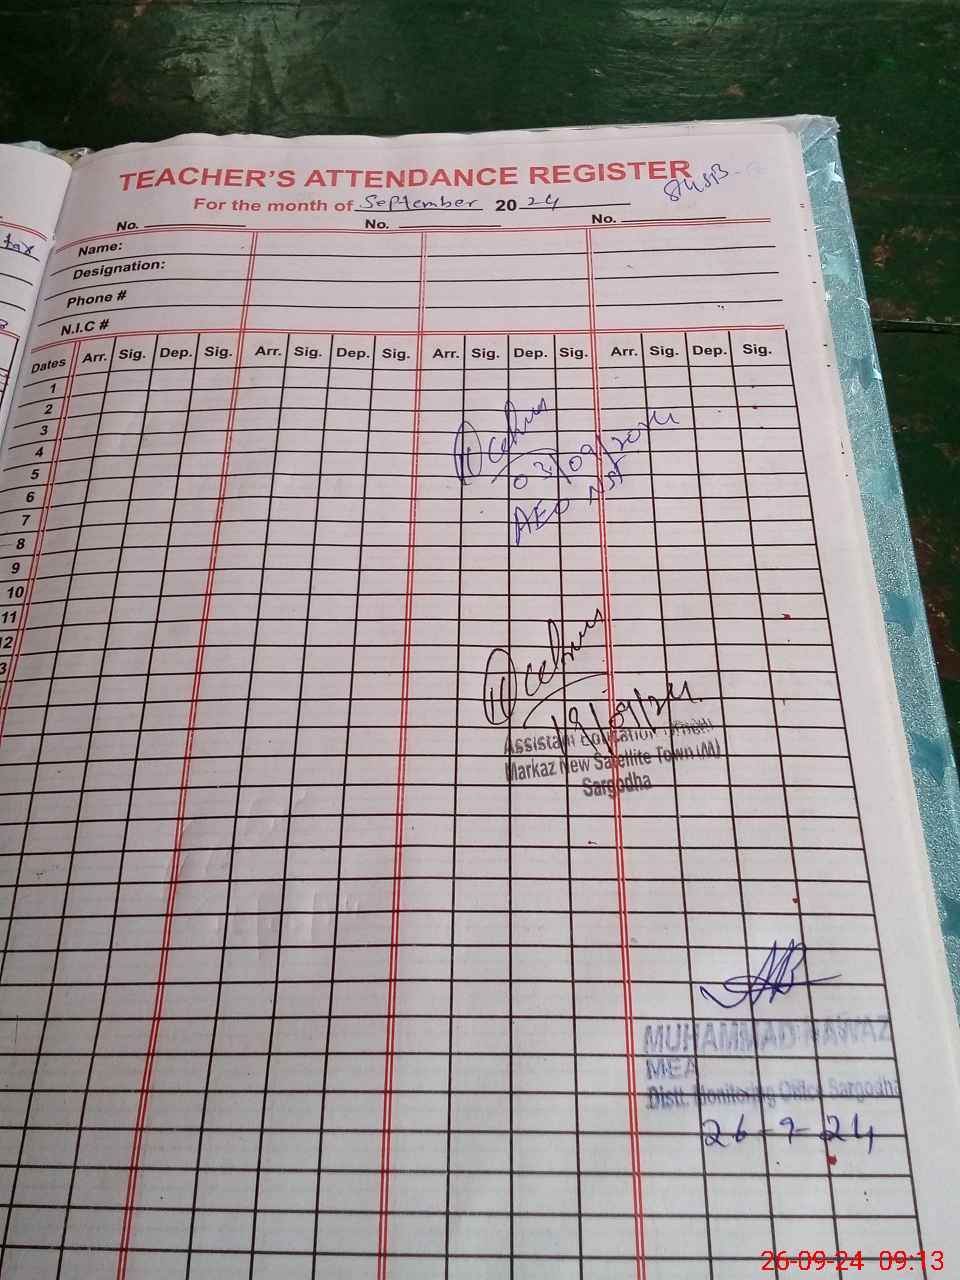 TEACHER'S ATTENDANCE REGISTER
84 SB
For the month of September 20 24
tax
No. No. No.
Name:
Designation:
Phone #
N.I.C #
Dates Arr. Sig. Dep. Sig. Arr. Sig. Dep. Sig. Arr. Sig. Dep. Sig. Arr. Sig. Dep. Sig.
1
2
3
4
5
6
7
8
9
10
11
12
03/09/2024
AEO NST
18/09/24
Assistant Education Officer
Markaz New Satellite Town (M)
Sargodha
MUHAMMAD NAWAZ
MEA
Distt. Monitoring Office Sargodha
26-9-24
26-09-24 09:13